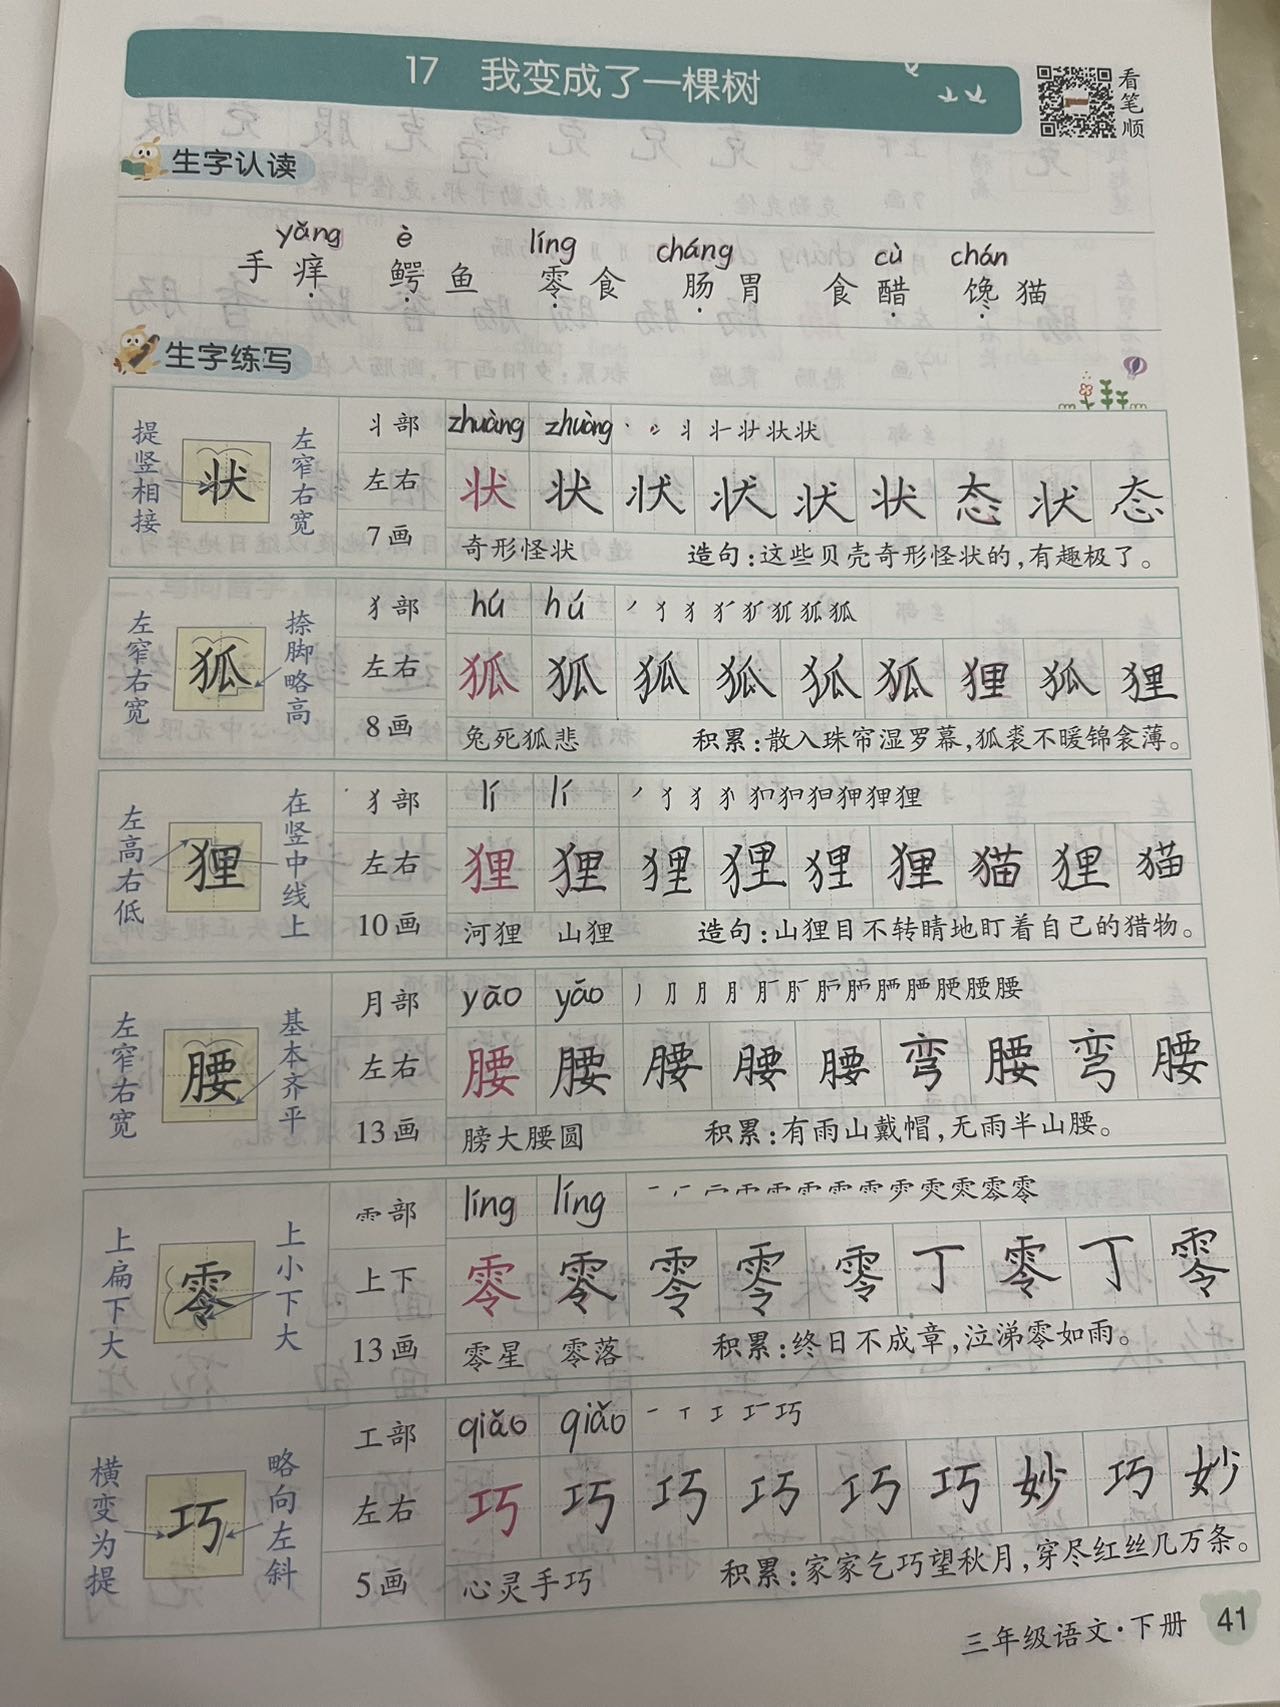 17 我变成了一棵树
看笔顺
生字认读
yǎng è líng cháng cù chán
手痒 鳄鱼 零食 肠胃 食醋 馋猫
生字练写
提竖相接
状
左窄右宽
丬部
左右
7画
zhuàng zhuàng
状 状 状 状 状 状 态 状 态
奇形怪状 造句:这些贝壳奇形怪状的,有趣极了。
左窄右宽
狐
捺脚略高
犭部
左右
8画
hú hú
狐 狐 狐 狐 狐 狐 狸 狐 狸
兔死狐悲 积累:散入珠帘湿罗幕,狐裘不暖锦衾薄。
左高右低
狸
在竖中线上
犭部
左右
10画
lí lí
狸 狸 狸 狸 狸 狸 猫 狸 猫
河狸 山狸 造句:山狸目不转睛地盯着自己的猎物。
左窄右宽
腰
基本齐平
月部
左右
13画
yāo yāo
腰 腰 腰 腰 腰 弯 腰 弯 腰
膀大腰圆 积累:有雨山戴帽,无雨半山腰。
上扁下大
零
上小下大
⻗部
上下
13画
líng líng
零 零 零 零 零 丁 零 丁 零
零星 零落 积累:终日不成章,泣涕零如雨。
横变为提
巧
略向左斜
工部
左右
5画
qiǎo qiǎo
巧 巧 巧 巧 巧 巧 妙 巧 妙
心灵手巧 积累:家家乞巧望秋月,穿尽红丝几万条。
三年级语文·下册 41